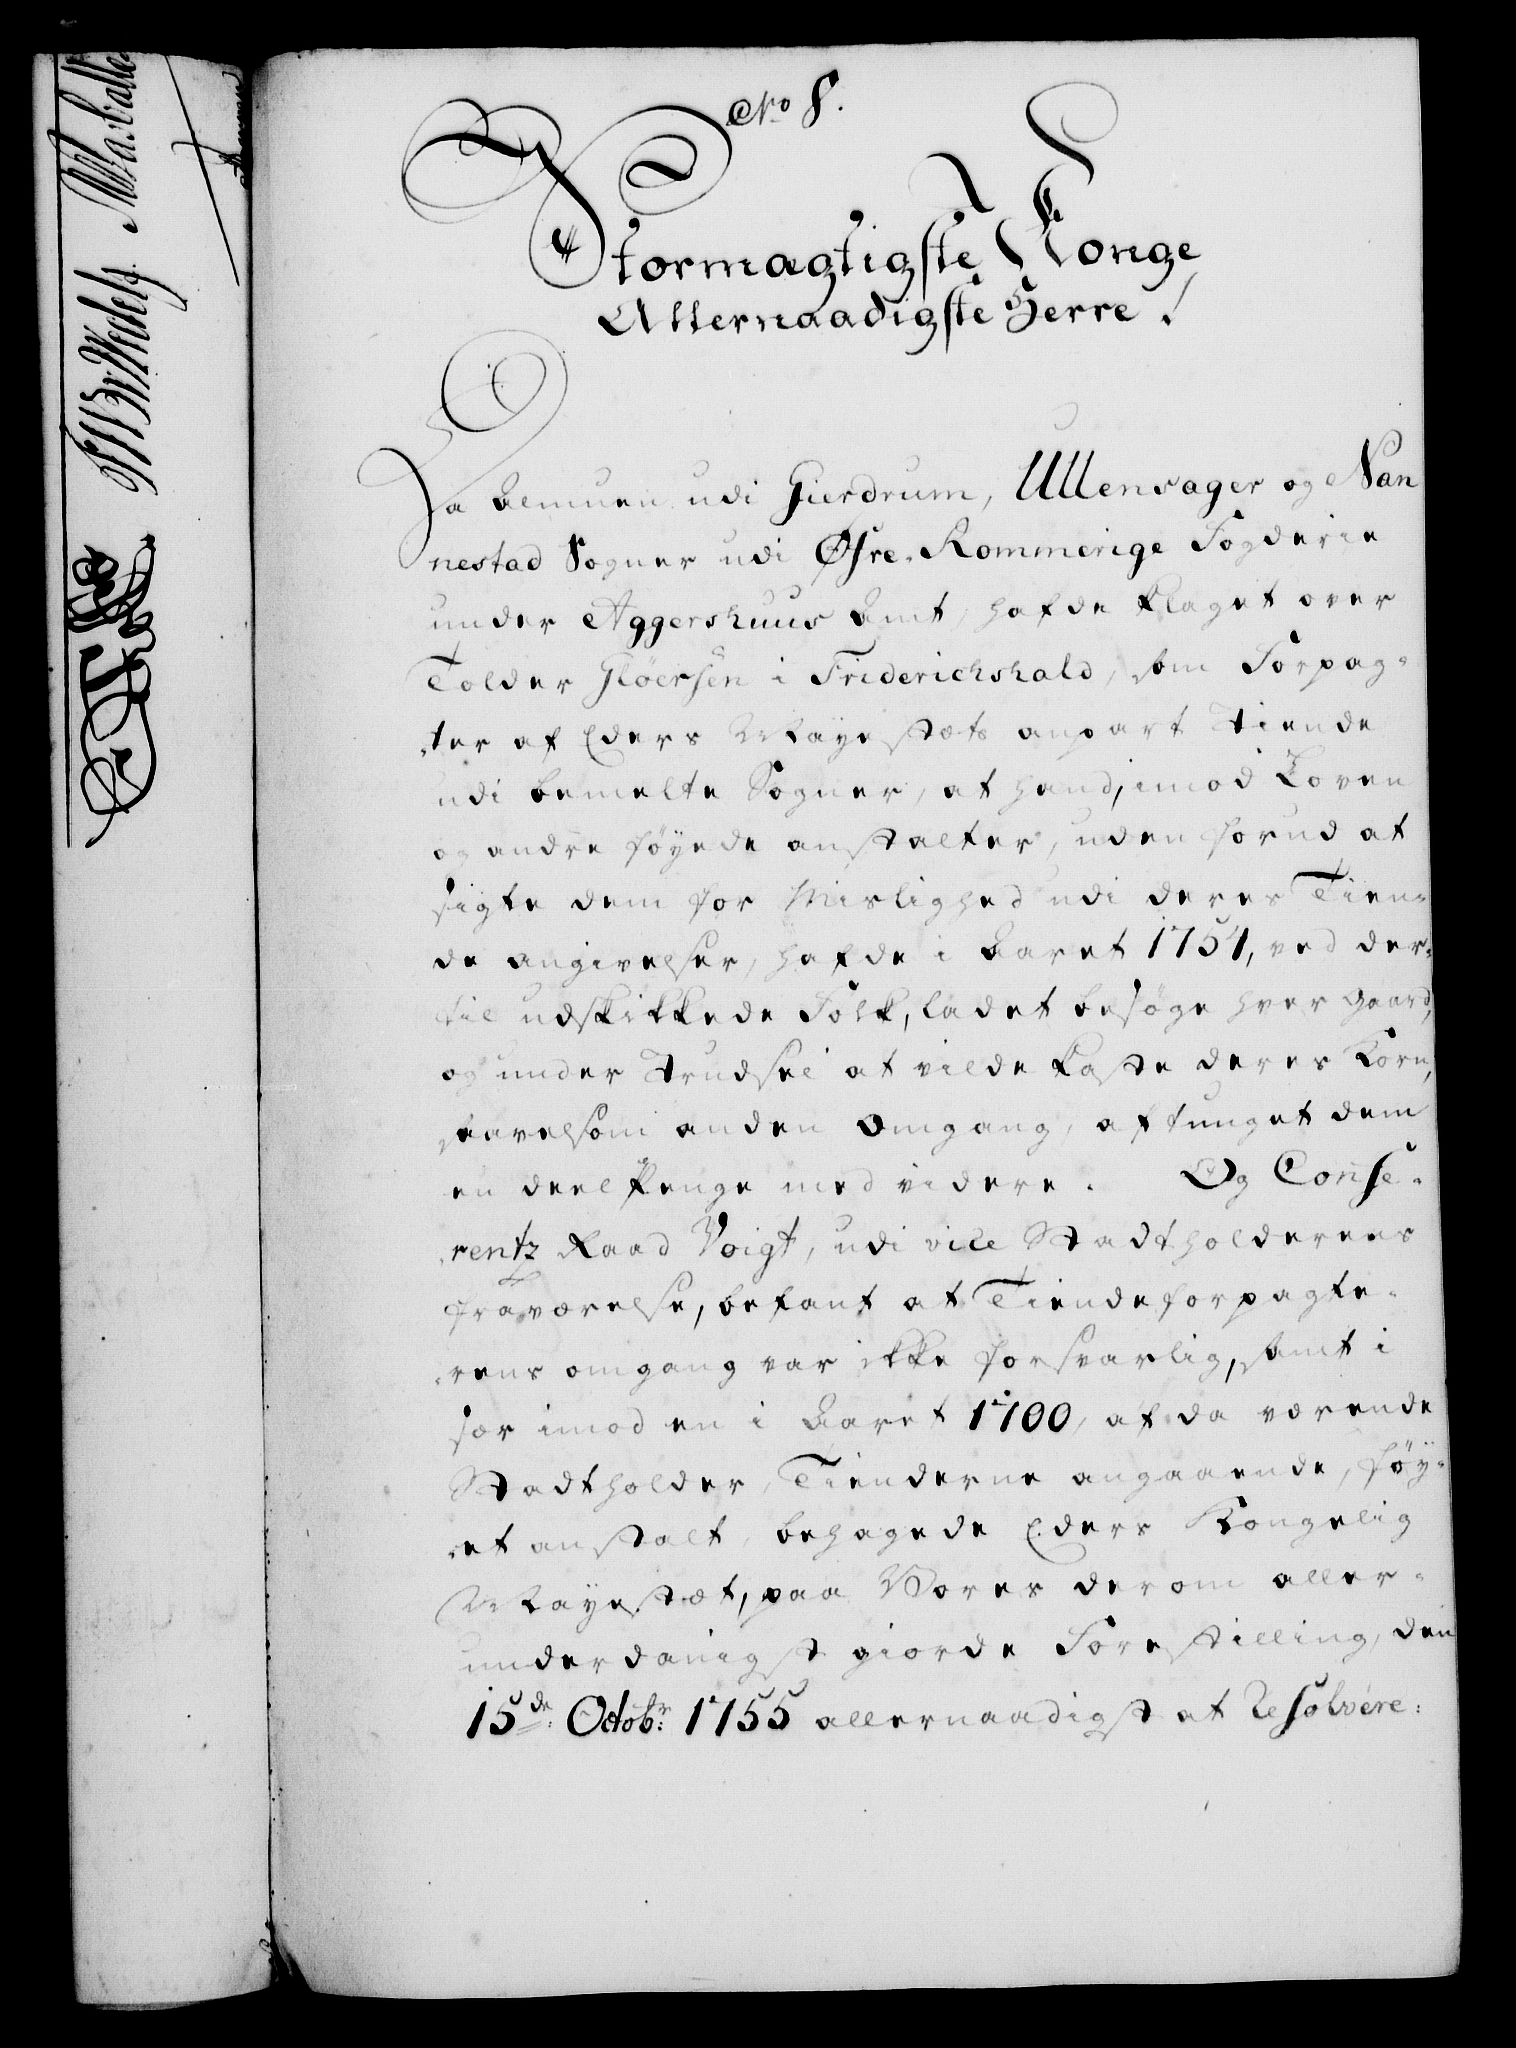 No 8.
Stormagtigste Konge
Allernaadigste Herre!
Da Almuen udi Gierdrum, Ullensager og Nan
nestad Sogner udi Øfre-Rommerige Fogderie
under Aggershuus Amt, hafde klaget over
Tolder Gløersen i Friderichshald, som Forpag-
ter af Eders Mayestæts anpart Tiende
udi bemelte Sogner, at hand, imod Loven
og andre føyede anstalter, uden forud at
sigte dem for Mislighed udi deres Tien-
de angivelser, hafde i Aaret 1754, ved der-
til udskikkede Folk, ladet besøge hver Gaard,
og under Trudsel at vilde kaste deres Korn,
saavelsom anden Omgang, aftunget dem
en deel Penge med videre. Og Confe-
rentz Raad Voigt, udi vice Stadtholderens
fraværelse, befant at Tiendeforpagte-
rens omgang var ikke forsvarlig, samt i
sær imod en i Aaret 1700, af da værende
Stadtholder, Tienderne angaaende, føy-
et anstalt, behagede Eders Kongelig
Mayestæt, paa Vores derom aller-
underdanigst giorde Forestilling, den
15de Octobr: 1755 allernaadigst at Resolvere: